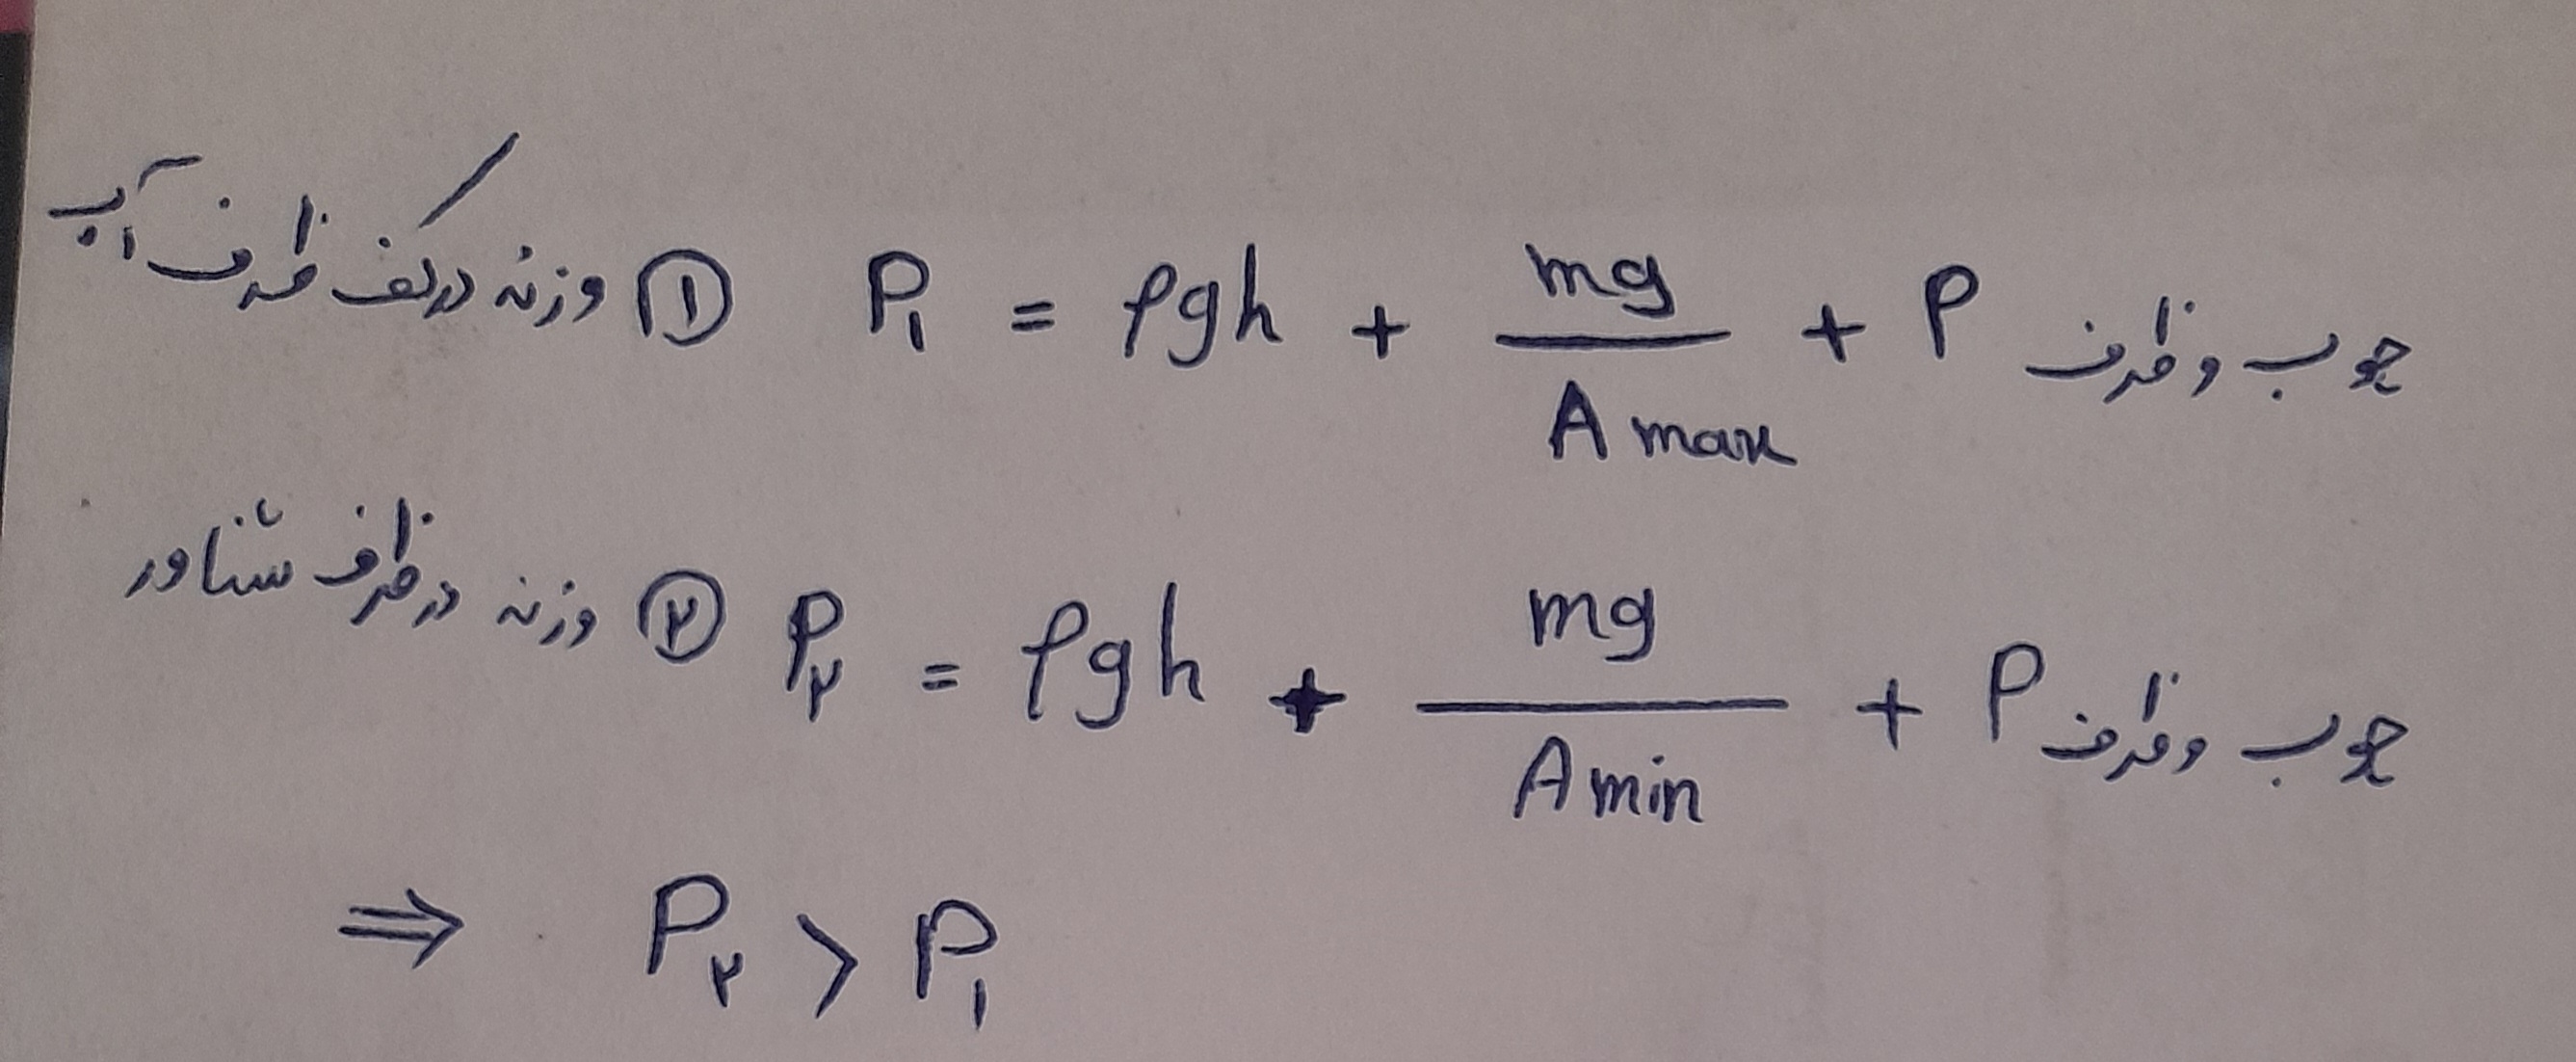 ① وزنه در کف ظرف آب P₁ = ρgh + mg / A max + P چوب و ظرف
② وزنه در ظرف شناور P₂ = ρgh + mg / A min + P چوب و ظرف
⇒ P₂ > P₁